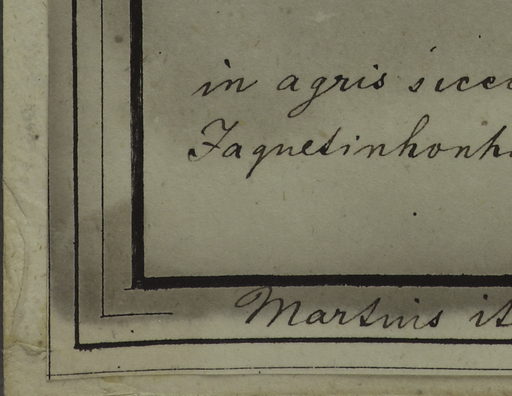 in agris sicc
Jaquetinhonh
Martius it